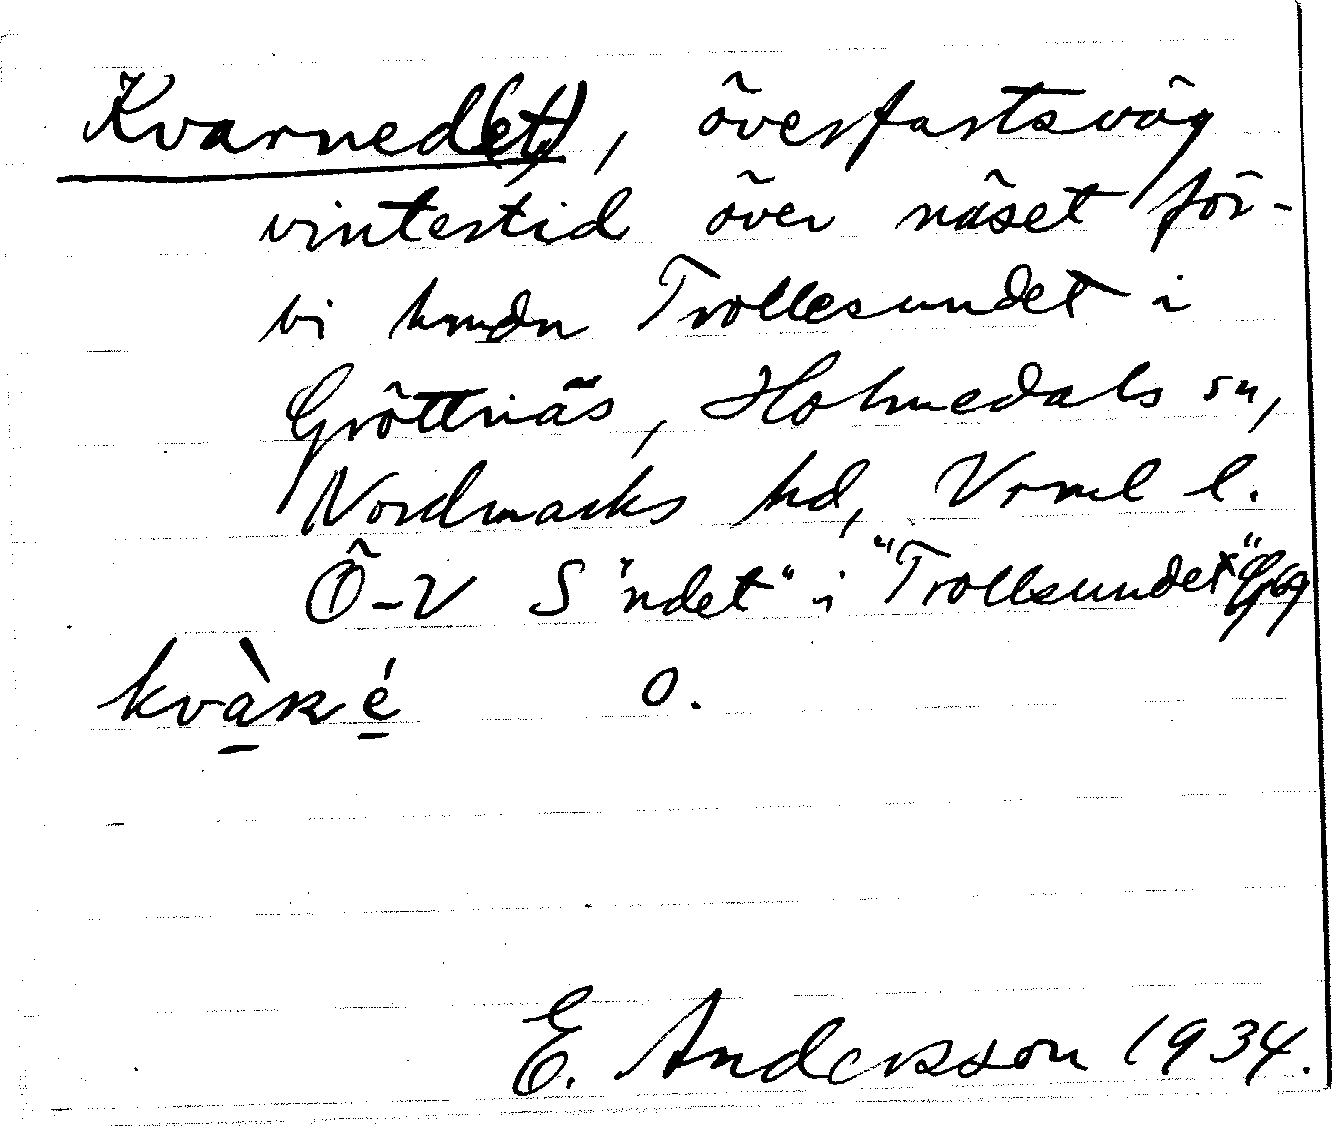 Kvarned(et), överfartsväg
vintertid över näset för-
bi Trollesundet i
Gröttnäs, Holmedals sn,
Nordmarks hd, Vrml l.
Ö-V S "ndet" i "Trollsundet"
kvàṟné o.
E. Andersson 1934.